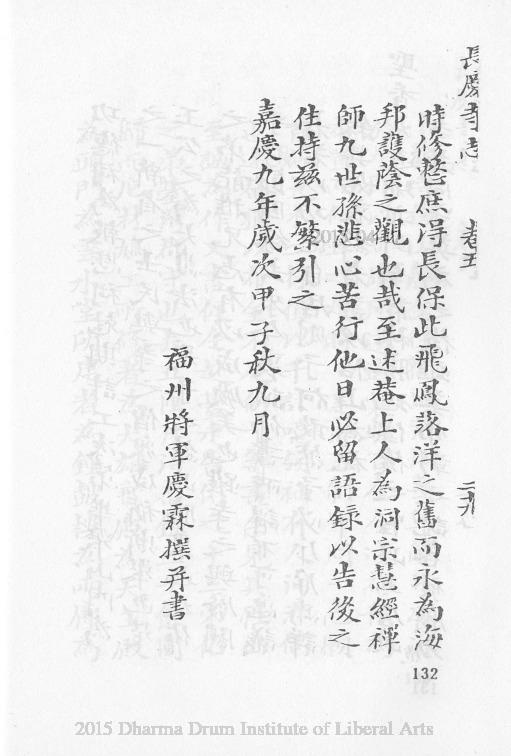 長慶寺志 卷五 二九
時修整庶得長保此飛鳳落洋之舊而永為海
邦護蔭之觀也哉至述菴上人為洞宗慧經禪
師九世孫悲心苦行他日必留語録以告後之
住持茲不繁引之
嘉慶九年歲次甲子秋九月
福州將軍慶霖撰并書
132
2015 Dharma Drum Institute of Liberal Arts